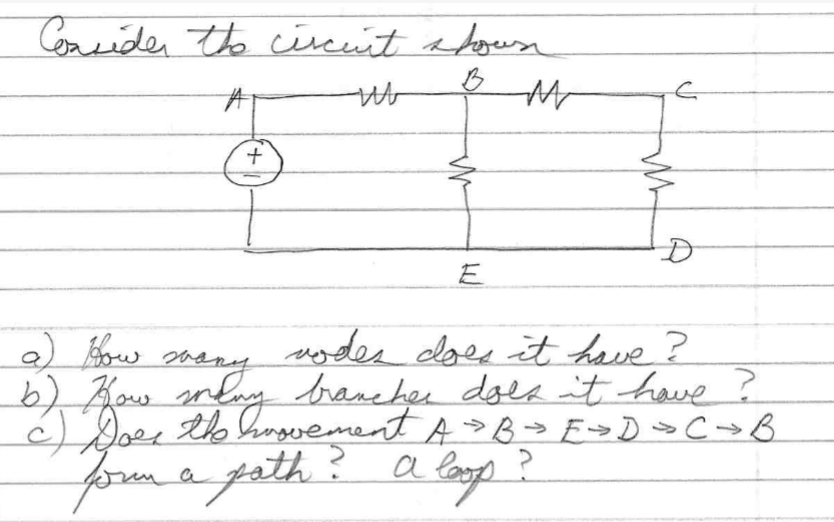 Consider the circuit shown
A B C
+
−
E D
a) How many nodes does it have?
b) How many branches does it have?
c) Does the movement A → B → E → D → C → B
form a path? a loop?